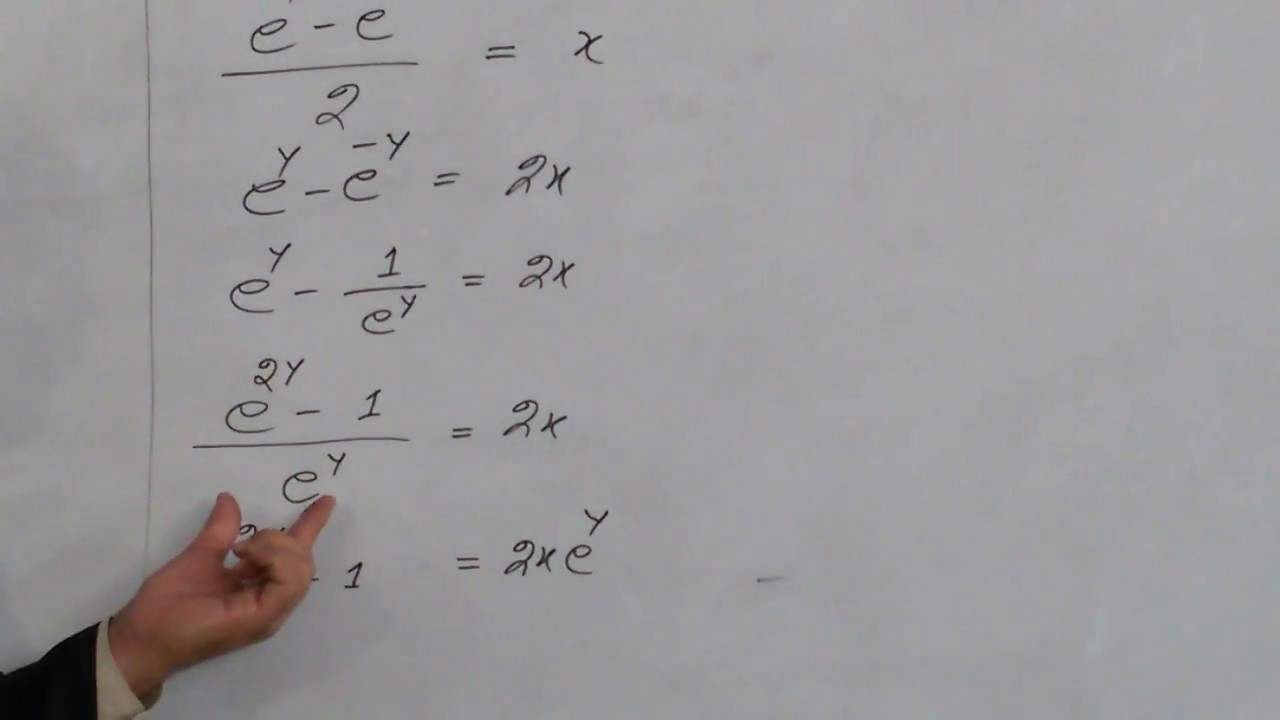 e - e / 2 = x
e^y - e^-y = 2x
e^y - 1/e^y = 2x
e^2y - 1 / e^y = 2x
- 1 = 2xe^y